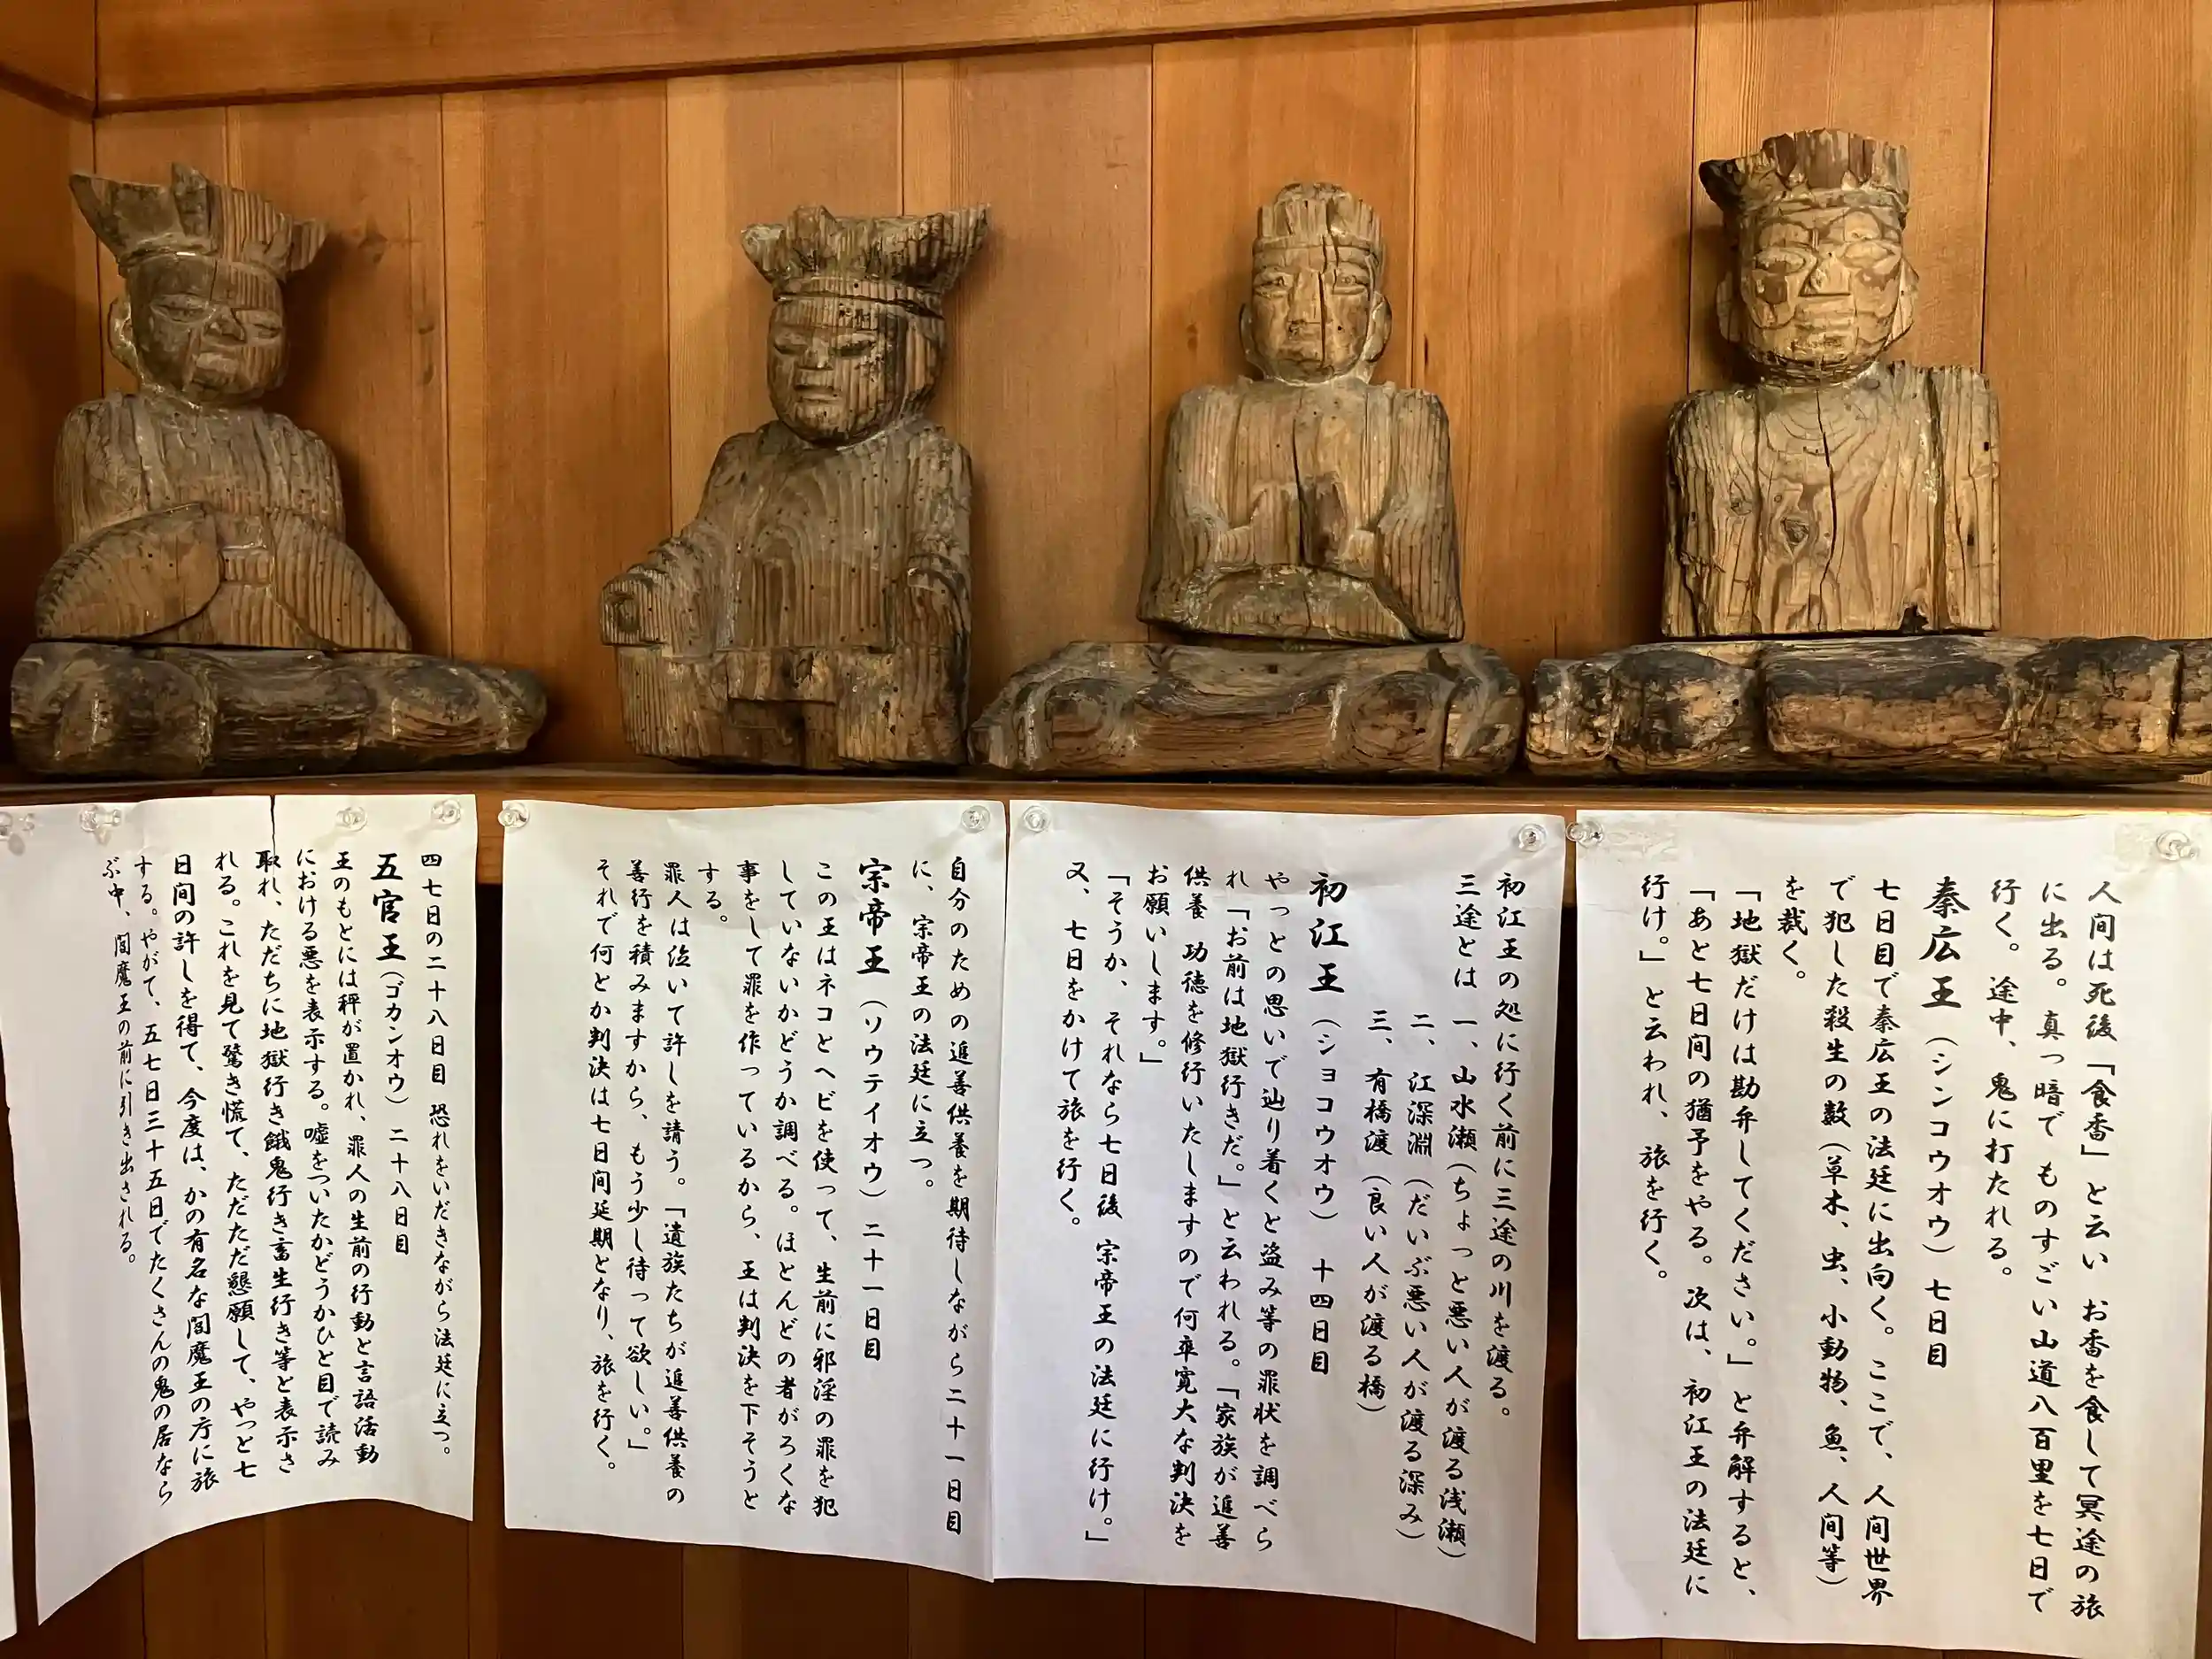 人間は死後「食香」と云い お香を食して冥途の旅
に出る。真っ暗で ものすごい山道八百里を七日で
行く。途中、鬼に打たれる。
秦広王（シンコウオウ）七日目
七日目で秦広王の法廷に出向く。ここで、人間世界
で犯した殺生の数（草木、虫、小動物、魚、人間等）
を裁く。
「地獄だけは勘弁してください。」と弁解すると、
「あと七日間の猶予をやる。次は、初江王の法廷に
行け。」と云われ、旅を行く。
初江王の処に行く前に三途の川を渡る。
三途とは 一、山水瀬（ちょっと悪い人が渡る浅瀬）
二、江深淵（だいぶ悪い人が渡る深み）
三、有橋渡（良い人が渡る橋）
初江王（ショコウオウ）十四日目
やっとの思いで辿り着くと盗み等の罪状を調べら
れ「お前は地獄行きだ。」と云われる。「家族が追善
供養 功徳を修行いたしますので何卒寛大な判決を
お願いします。」
「そうか、それなら七日後 宗帝王の法廷に行け。」
又、七日をかけて旅を行く。
自分のための追善供養を期待しながら二十一日目
に、宗帝王の法廷に立つ。
宗帝王（ソウテイオウ）二十一日目
この王はネコとヘビを使って、生前に邪淫の罪を犯
していないかどうか調べる。ほとんどの者がろくな
事をして罪を作っているから、王は判決を下そうと
する。
罪人は泣いて許しを請う。「遺族たちが追善供養の
善行を積みますから、もう少し待って欲しい。」
それで何とか判決は七日間延期となり、旅を行く。
四七日の二十八日目 恐れをいだきながら法廷に立つ。
五官王（ゴカンオウ）二十八日目
王のもとには秤が置かれ、罪人の生前の行動と言語活動
における悪を表示する。嘘をついたかどうかひと目で読み
取れ、ただちに地獄行き餓鬼行き畜生行き等と表示さ
れる。これを見て驚き慌て、ただただ懇願して、やっと七
日間の許しを得て、今度は、かの有名な閻魔王の庁に旅
する。やがて、五七日三十五日でたくさんの鬼の居なら
ぶ中、閻魔王の前に引き出される。